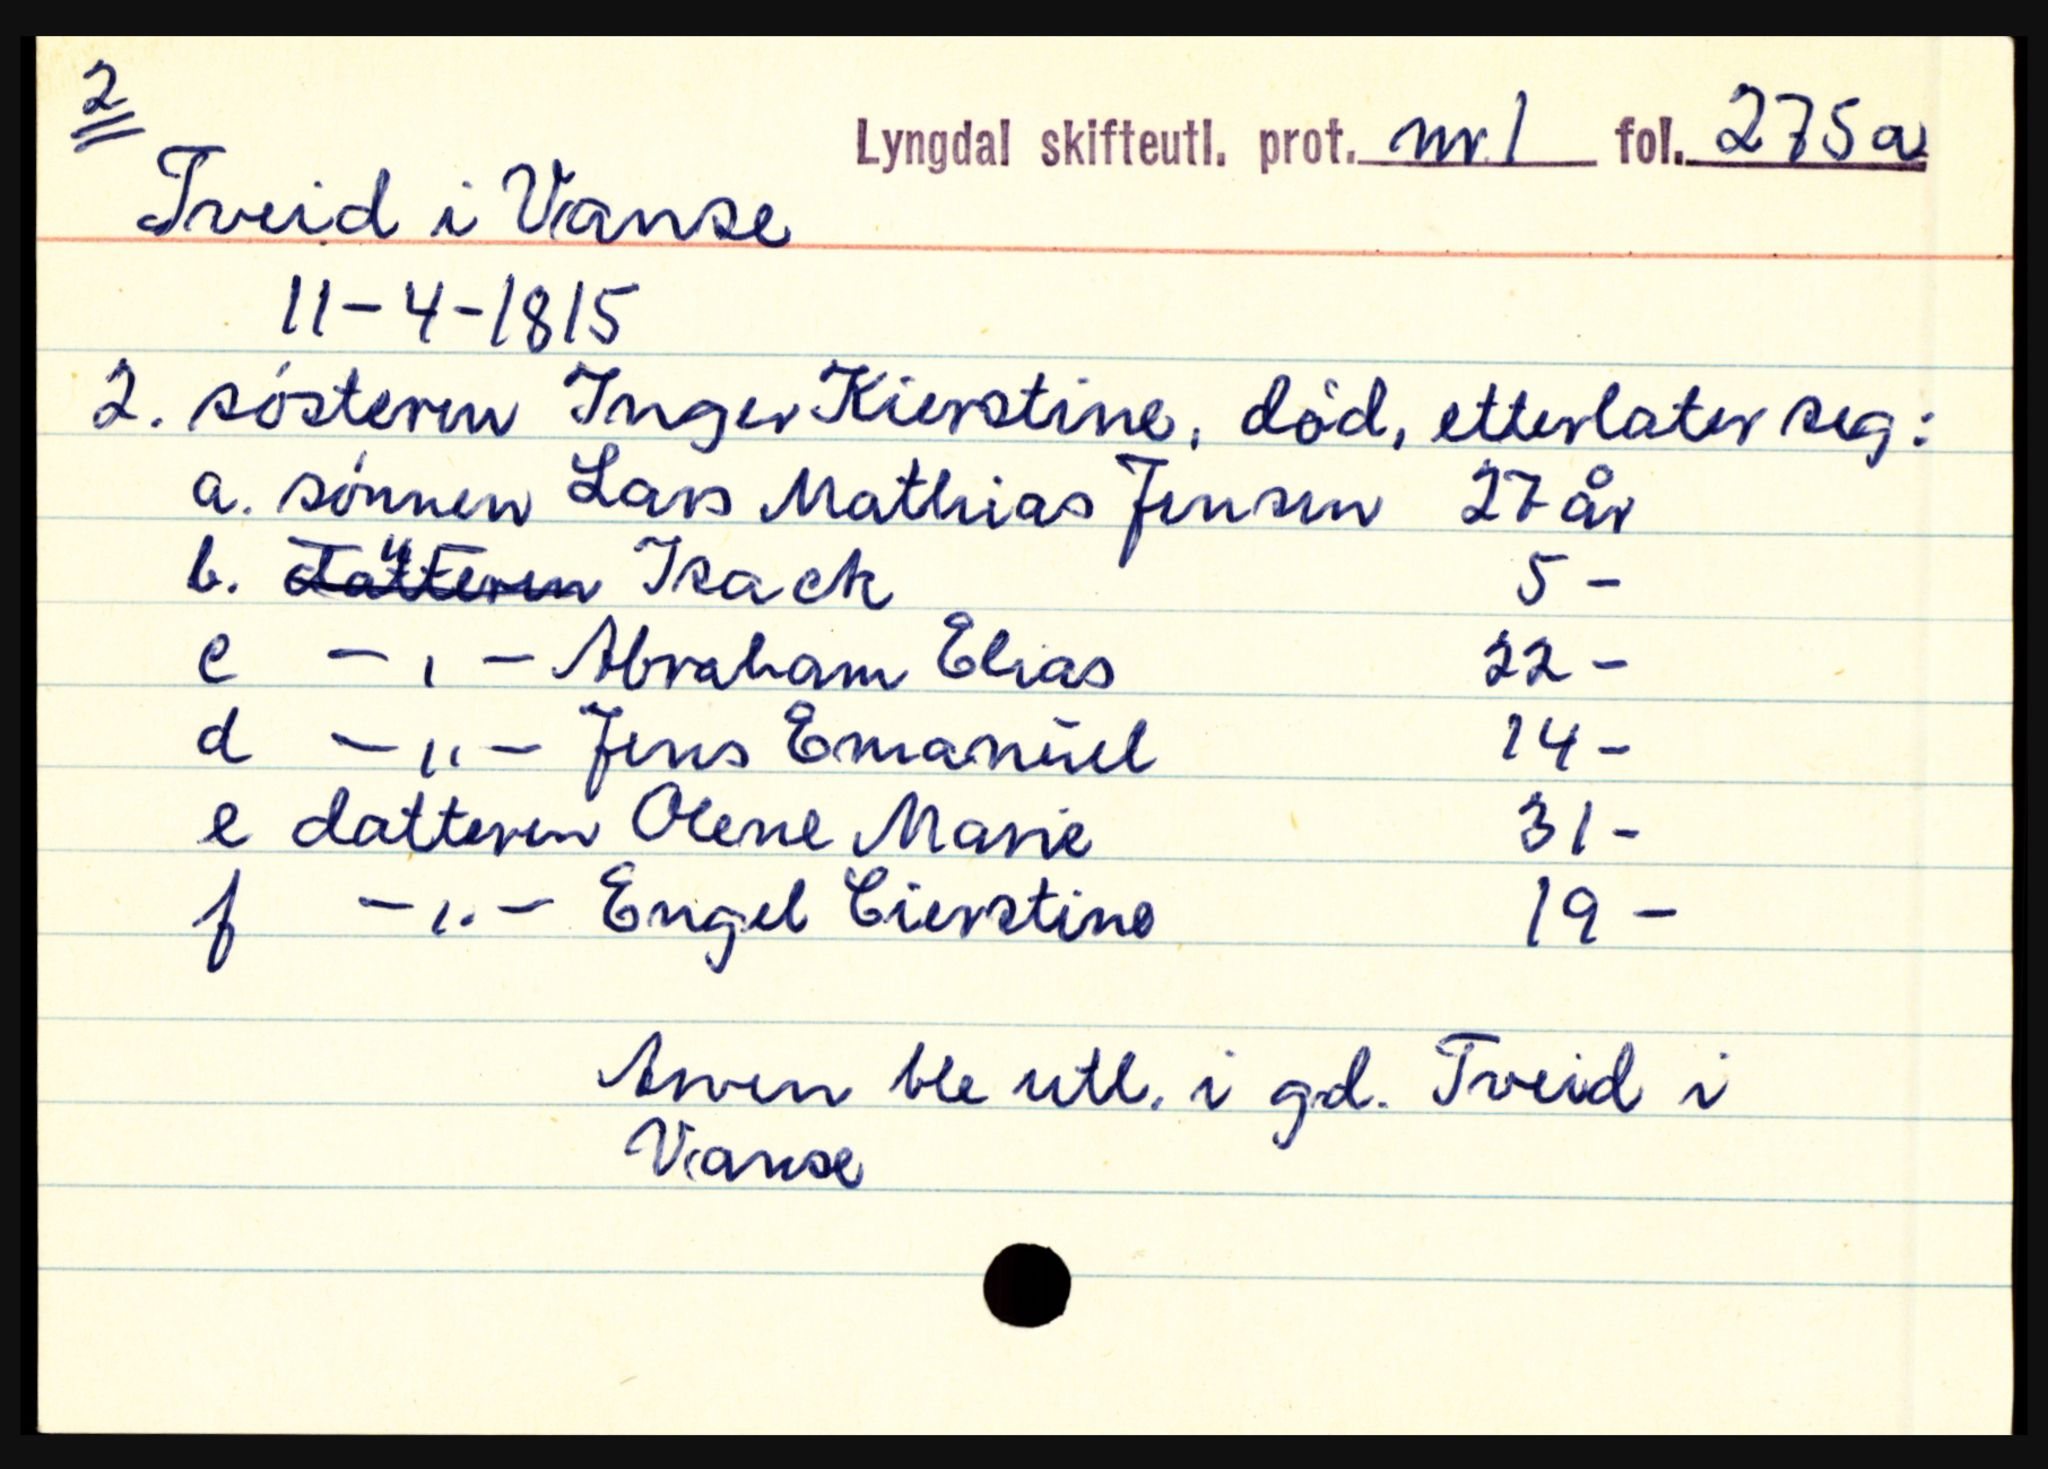 2
Lyngdal skifteutl. prot. nr. 1 fol. 275a
Tveid i Vanse
11-4-1815
2. søsteren Inger Kierstine, død, etterlater seg:
a. sønnen Lars Mathias Jensen 27 år
b. datteren " Isack 5 -
c - , - Abraham Elias 22 -
d - ,, - Jens Emanuel 14 -
e datteren Olene Marie 31 -
f - ,, - Engel Cierstine 19 -
Arven ble utl. i gd. Tveid i
Vanse